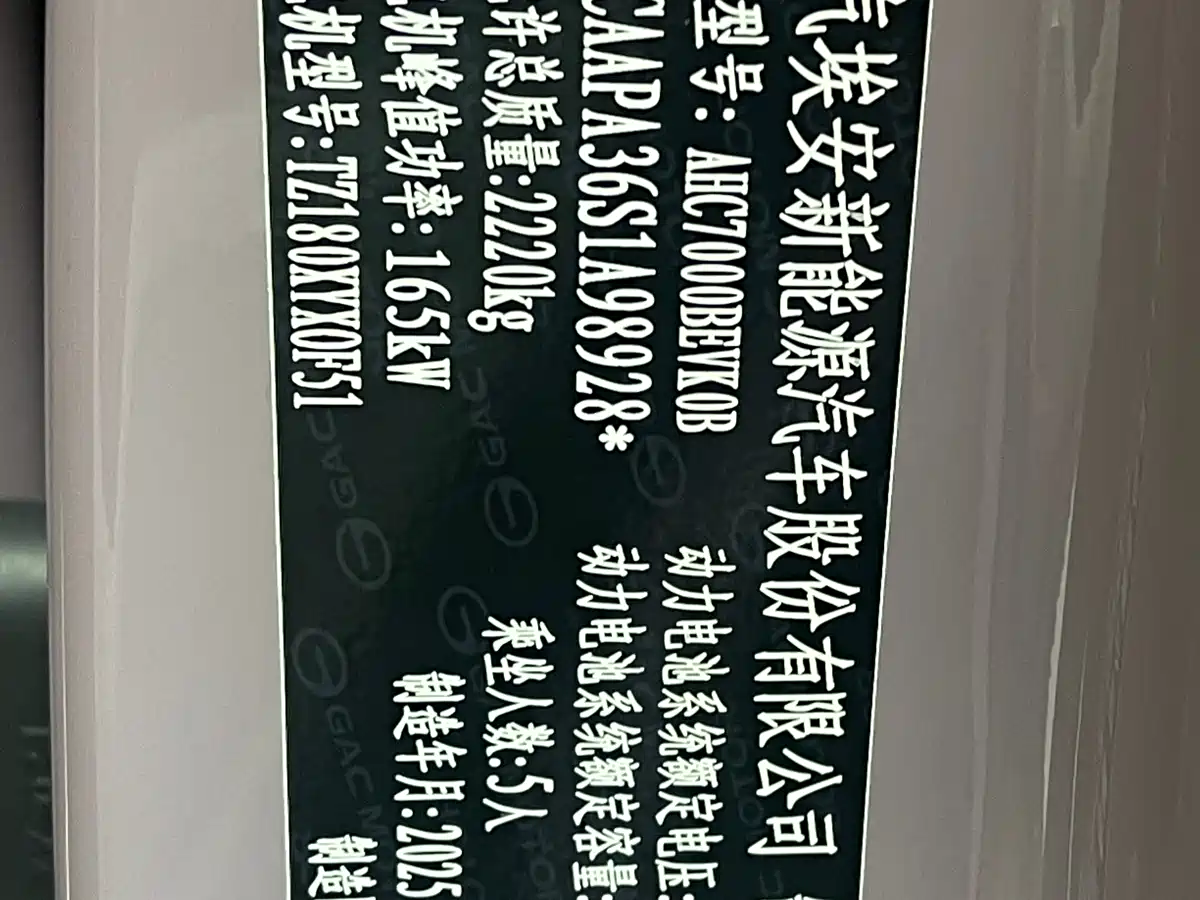 汽埃安新能源汽车股份有限公司
型号：AHC7000BEVK0B 动力电池系统额定电压：
CAAPA36S1A98928* 动力电池系统额定容量：
许总质量:2220kg 乘坐人数:5人
机峰值功率：165kW 制造年月:2025
机型号:TZ180XYX0F51 制造
GAC
GAC
GAC M